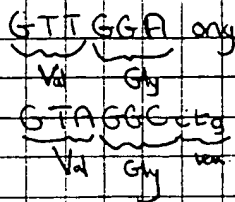 GTT GGA only
Val Gly
GTA GGG ctg
Val Gly Leu